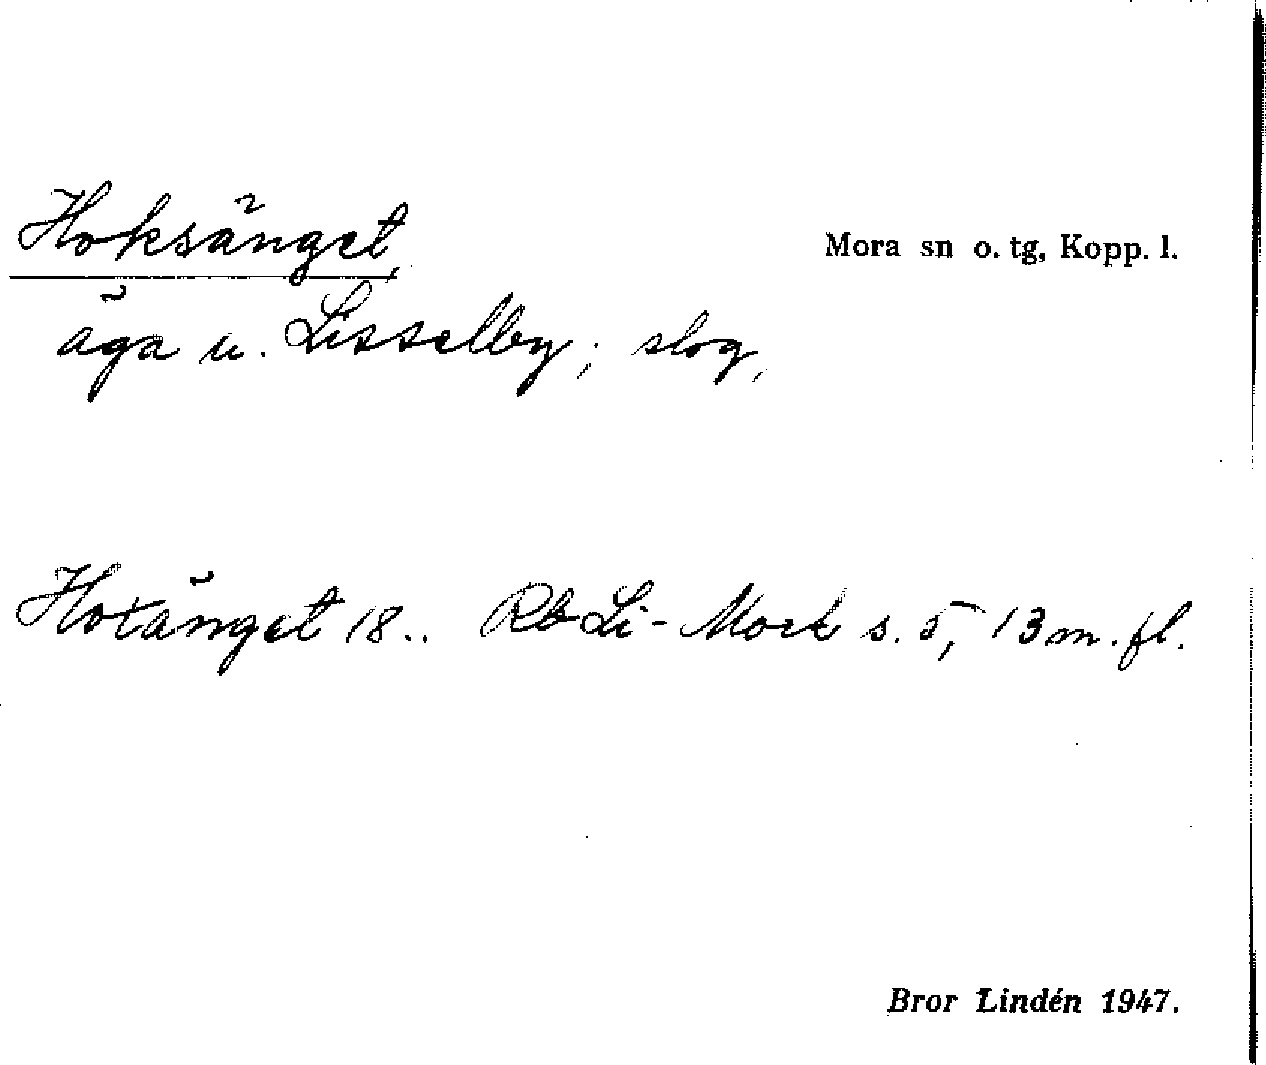 Hoksänget
Mora sn o. tg, Kopp. l.
äga u. Lisselby; slog,
Hoxänget 18.. Rb Li-Mork s. 5, 13 m. fl.
Bror Lindén 1947.